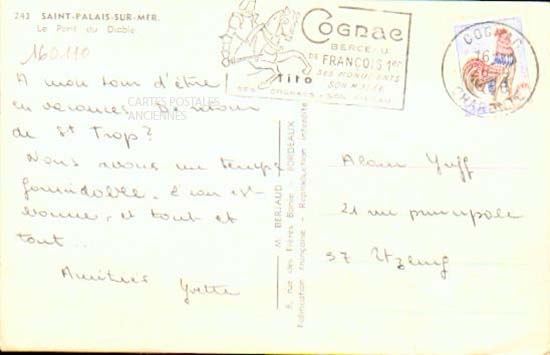 243 SAINT-PALAIS-SUR-MER.
Le Pont du Diable
160.110
A mon tour d'être
en vacances. De retour
de St Trop?
Nous avons un temps
formidable, l'eau est
bonne, et tout et
tout...
Amitiés Yvette
CARTES POSTALES
ANCIENNES
COGNAC
BERCEAU
DE FRANÇOIS 1er
SES MONUMENTS
SON MUSÉE
SES COGNACS
COGNAC
16
CHARENTE
M. BERJAUD - BORDEAUX
8, rue des Frères Bonie
Fabrication Française - Reproduction interdite
Alain Yuff
21 rue principale
57